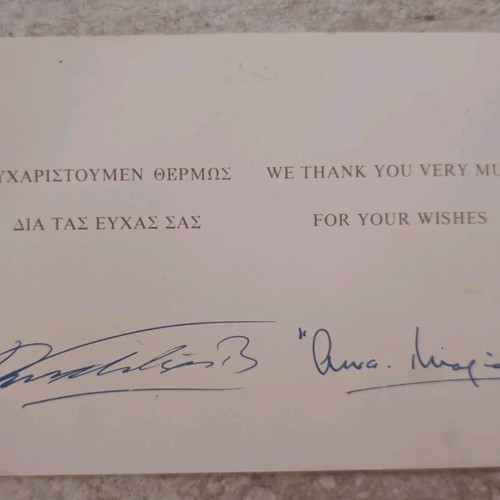 ΥΧΑΡΙΣΤΟΥΜΕΝ ΘΕΡΜΩΣ
ΔΙΑ ΤΑΣ ΕΥΧΑΣ ΣΑΣ
WE THANK YOU VERY MU
FOR YOUR WISHES